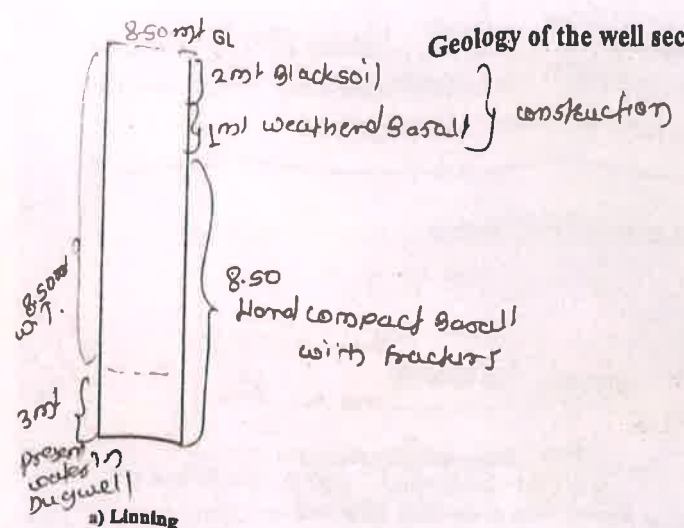 8.50 mt GL
Geology of the well sec
2mt Blacksoil
1mt weatherd Basalt
construction
8.50
Hard compact Basalt
with frackurs
8.50mt
W.T.
3mt
present
water in
Dugwell
a) Linning